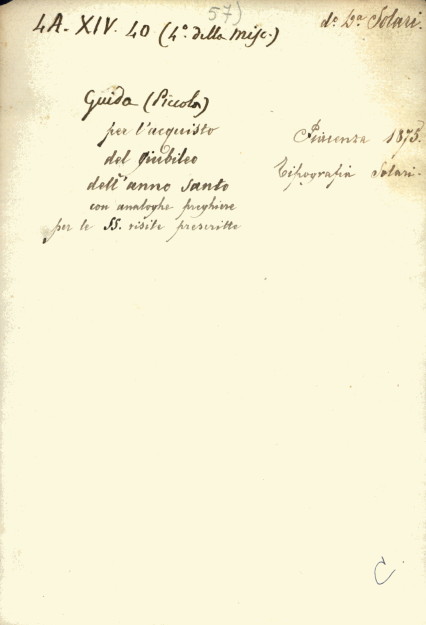 57)
4A. XIV. 40 (4º. della Misc.)
dº Dª Solari.
Guida (Piccola)
per l'acquisto
del Giubileo
dell'anno santo
con analoghe preghiere
per le SS. visite prescritte
Piacenza 1875.
Tipografia Solari.
C.